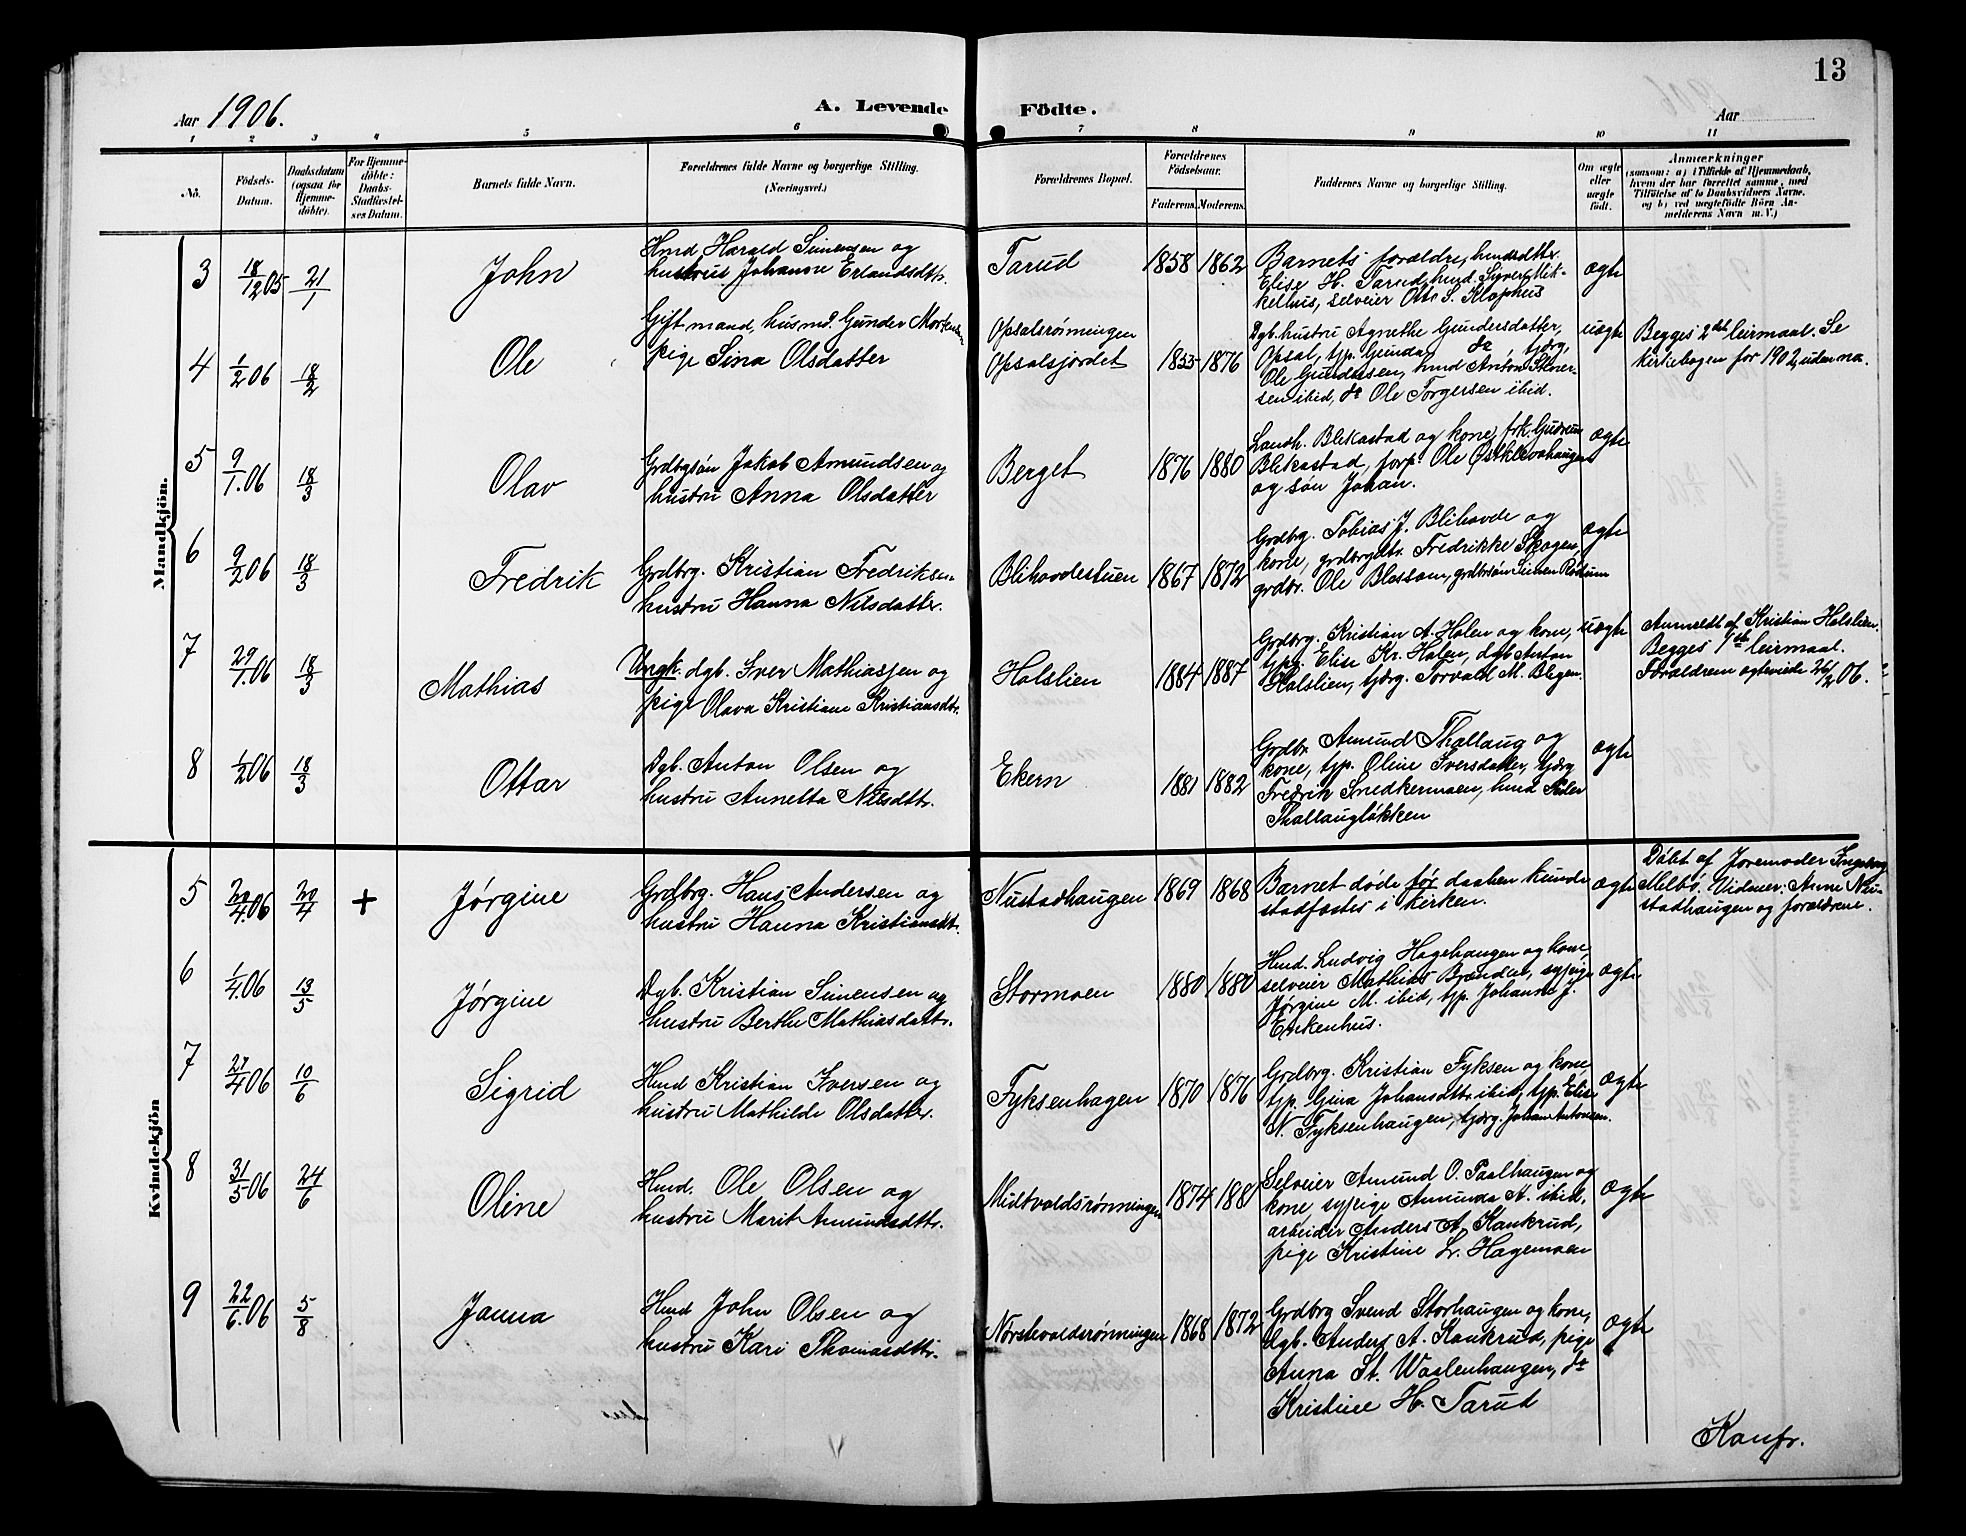 13
Aar 1906.
A. Levende Födte.
Aar
1 2 3 4 5 6 7 8 9 10 11
No.
Födsels-Datum.
Daabsdatum (ogsaa for Hjemme-döbte).
For Hjemme-döbte: Daabs-Stadfæstel-ses Datum.
Barnets fulde Navn.
Forældrenes fulde Navne og borgerlige Stilling.
(Næringsvei.)
Forældrenes Bopæl.
Forældrenes Födselsaar.
Faderens. Moderens.
Faddernes Navne og borgerlige Stilling.
Om ægte eller uægte født.
Anmærkninger
(saasom: a) i Tilfælde af Hjemmedaab,
hvem der har forrettet samme, med
Tilföielse af to Daabsvidners Navne.
og b) ved uægtefödte Börn An-
melderens Navn m. V.)
Mandkjön.
3 18/12 05 21/1 John
Hmd Harald Simensen og
hustrus Johanne Erlandsdtr.
Tarud 1858 1862
Barnets forældre, husmdsdtter
Elise H. Tarud, hmd. Syver Mik-
kelhus, selveier Otto S. Klophus
ægte
4 1/2 06 18/2 Ole
Gift mand, husmd. Gunder Mortensen
pige Sina Olsdatter
Opsalsrønningen
Opsalsjordet 1855 1876
Dgb. hustru Agnethe Gundersdatter,
Opsal, tjp. Gunda do tjdrg,
Ole Gundersen, hmd Anton Siver-
sen ibid, do Ole Torgersen ibid.
uægte
Begges 2det leirmaal. Se
kirkebogen for 1902, uden no.
5 9/1.06 18/3 Olav
Grdbgsøn Jakob Amundsen og
hustru Anna Olsdatter
Berget 1876 1880
Landh. Blikastad og kone, frk. Gudrun
Blikastad, forp. Ole Østklevahaugen
og søn Johan.
ægte
6 9/2 06 18/3 Fredrik
Grdbrg. Kristian Fredriksen
hustru Hanna Nilsdatter.
Blihovdestuen 1867 1872
Grdbrg. Tobias J. Blihovde og
kone, grdbrgdtr. Fredrikke Skogen,
grdbr. Ole Blessom, grdbrsøn Simen Rødum
ægte
7 29/1.06 18/3 Mathias
Ungk. dgb. Iver Mathiassen og
pige Olava Kristiane Kristiansdtr.
Holslien 1884 1887
Grdbrg. Kristian A. Holen og kone,
tjpg. Elise Kr. Holen, dgb Anton
Holslien, tjdrg. Torvald M. Bligen.
uægte
Anmeldt af Kristian Holslien.
Begges 1ste leirmaal.
Forældrene egteviede 26/2 06.
8 1/2 06 18/3 Ottar
Dgb. Anton Olsen og
hustru Annetta Nilsdtr.
Ekern 1881 1882
Grdbr. Amund Thallaug og
kone, tjp. Oline Iversdatter, tjdrg
Fredrik Snedkermoen, hmd Peder
Thallaugløkken
ægte
Kvindekjön
5 20/4.06 20/4 + Jørgine
Grdbrg. Hans Andersen og
hustru Hanna Kristiansdtr.
Nustadhaugen 1869 1868
Barnet døde før daaben kunde
stadfæstes i kirken.
ægte
Døbt af Joremoder Ingeborg
Melbø. Vidner: Anne Nu-
stadhaugen og forældrene.
6 1/4.06 13/5 Jørgine
Dgb. Kristian Simensen og
hustru Berthe Mathiasdattr.
Stormoen 1880 1880
Hmd. Ludvig Hagehaugen og kone,
selveier Mathias Brænden, sypige
Jørgine M. ibid, tjp. Johanne J.
Enkenhus.
ægte
7 27/4 06 10/6 Sigrid
Hmd Kristian Iversen og
hustru Mathilde Olsdatter.
Fyksenhagen 1870 1876
Grdbrg. Kristian Fyksen og kone
tjp. Gina Johansdtr. ibid, tjp. Elise
N. Fyksenhaugen, tjdrg. Johan Antonsen.
ægte
8 31/5 06 24/6 Oline
Hmd. Ole Olsen og
hustru Marit Amundsdtr.
Midtvoldsrønningen 1874 1881
Selveier Amund O. Paalhaugen og
kone, sypige Amunda A. ibid,
arbeider Anders A. Kankrud,
pige Kristine Lr. Hagemoen
ægte
9 22/6.06 5/8 Janna
Hmd John Olsen og
hustru Kari Thomasdtr.
Nørstevoldsrønningen 1868 1872
Grdbrg Svend Storhaugen og kone,
dgb. Anders A. Kankrud, pige
Anna St. Waalenhaugen, do
Kristine H. Tarud
ægte
Konfr.